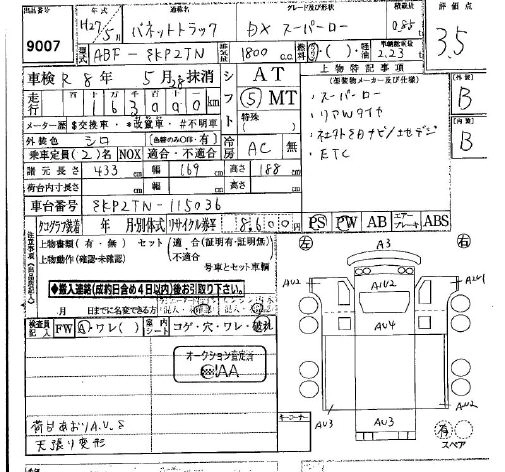 出品番号 年式 通称名 グレード及び形状 積載量 評価点
9007 H27/5月 バネットトラック DX スーパーロー 0.85t 3.5
型式 ABF-SKP2TN 排気量 1800 c.c. 燃料 ( )・軽油 車輌総重量 2.23t
車検 R 8年 5月 28 抹消 シフト AT 上物特記事項
走行 163000km ⑤MT (架装物メーカー及び仕様) 外装 B
メーター歴 $交換車・*改竄車・#不明車 特殊( ) ・スーパーロー
外装色 シロ (色替のみ○印・有) 冷房 AC 無 ・リアWタイヤ 内装 B
乗車定員 (2)名 NOX 適合・不適合
諸元長さ 433 cm 幅 169 cm 高さ 188 cm ・ETC
荷台内寸長さ cm 幅 cm 高さ cm
車台番号 SKP2TN-115036
タコグラフ装着 年 月・別体式 リサイクル券 8,600 PS PW AB エアーブレーキ ABS
注意事項(出品店記入)
上物書類 (有・無) セット 適合(証明有・証明無)
上物動作 (確認・未確認) 不適合
号車とセット車輌
◆搬入連絡(成約日含め4日以内)後お引取り下さい。
月 日までに名変できる方
検査員記入 FW A・ワレ( ) 室内シート コゲ・穴・ワレ・破れ
オークション査定済
AA
荷台あおりA.U.S
天張り変形
左 右
A3
AU2 A1U2
AU4
AU3 AU3 AU2
キーコーナー
有 スペア